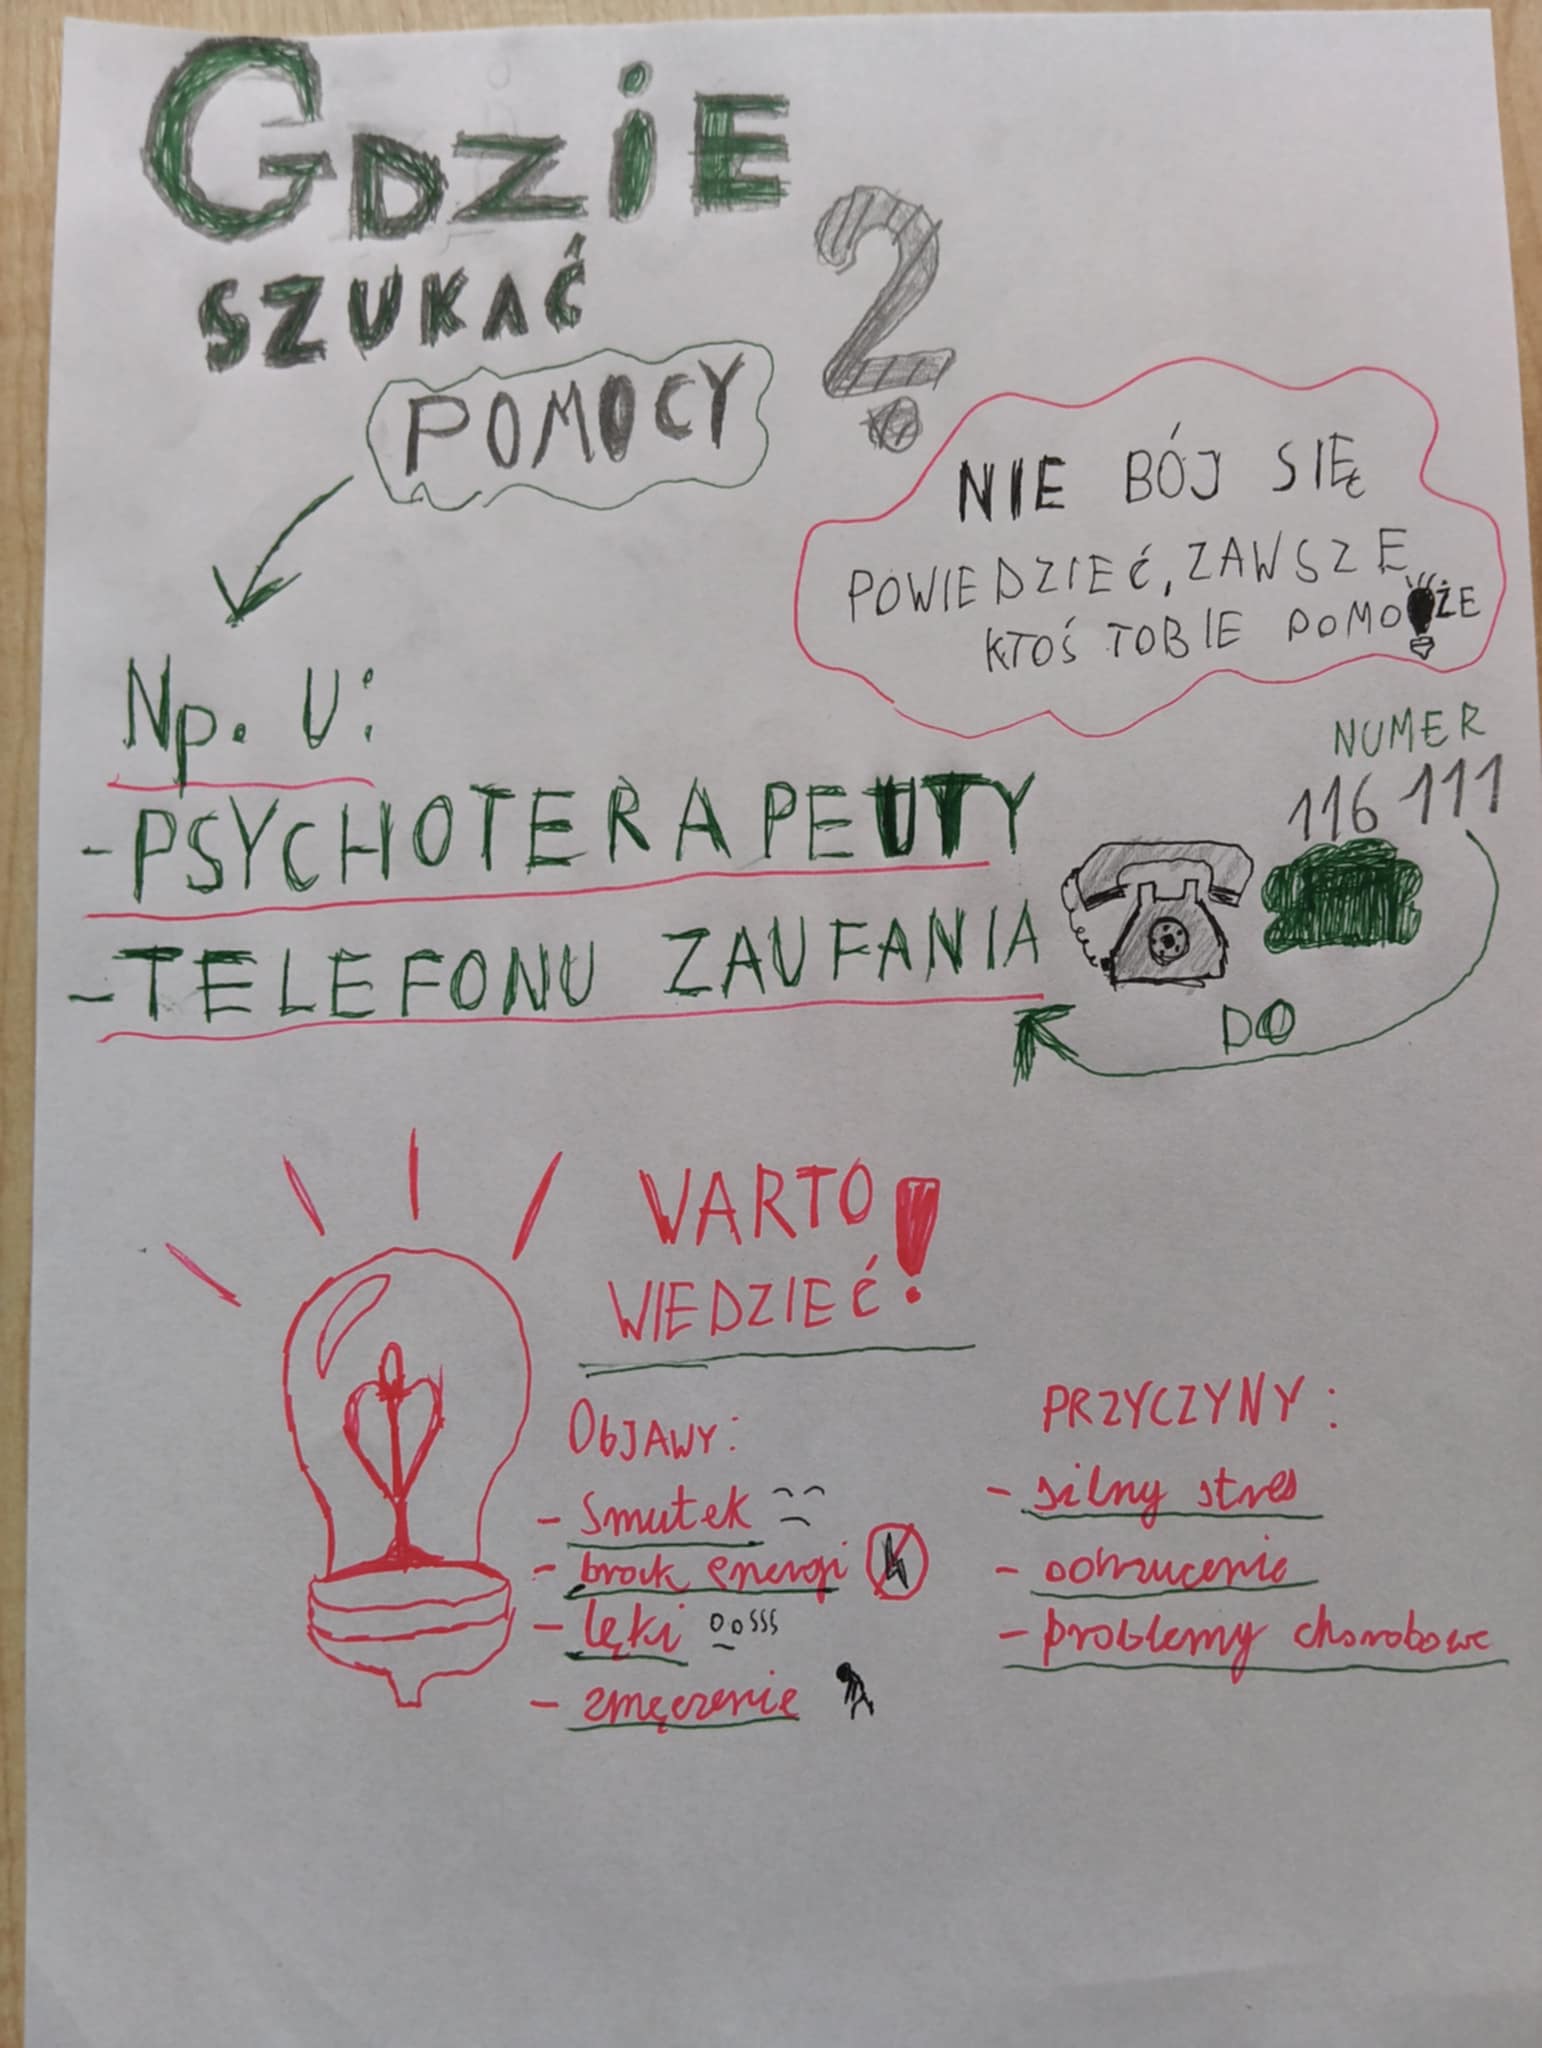 GDZIE
SZUKAĆ
POMOCY ?
NIE BÓJ SIĘ
POWIEDZIEĆ, ZAWSZE
KTOŚ TOBIE POMOŻE
Np. U:
- PSYCHOTERAPEUTY
- TELEFONU ZAUFANIA
NUMER
116 111
DO
WARTO
WIEDZIEĆ!
OBJAWY:
- smutek
- brak energi
- lęki
- zmęczenie
PRZYCZYNY:
- silny stres
- odrzucenie
- problemy chorobowe